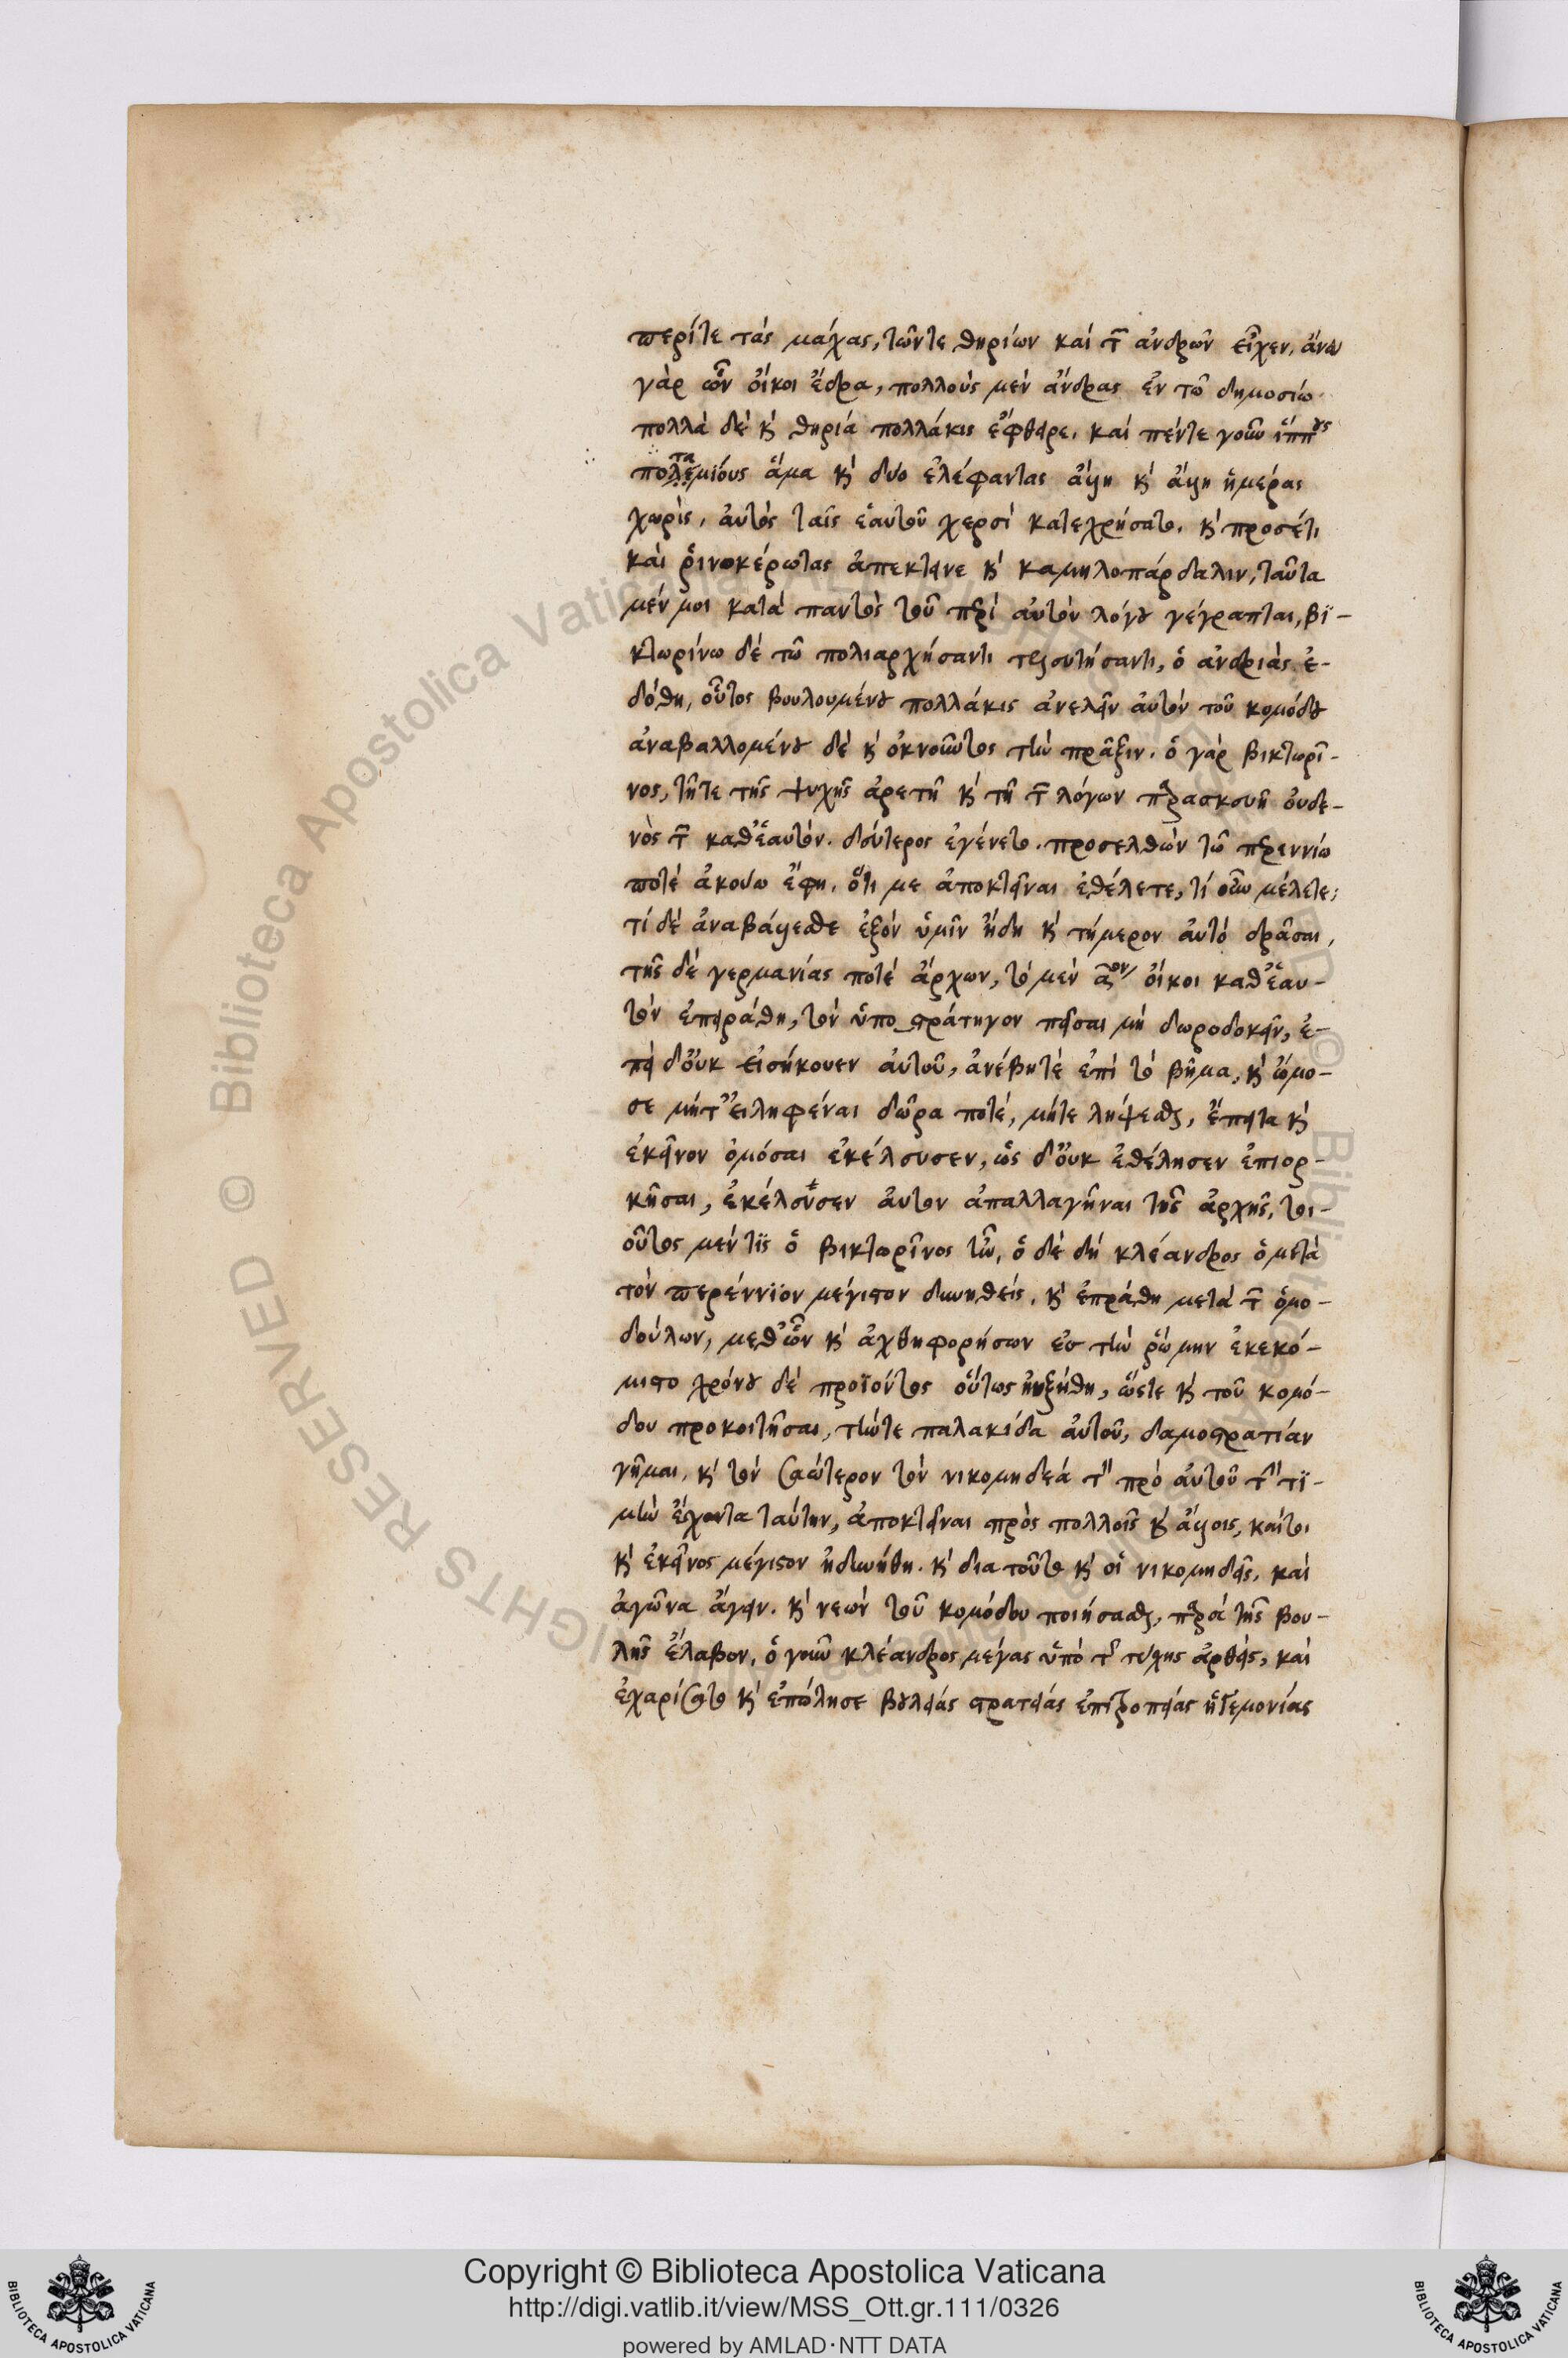 περίτε τάς μάχας, τῶντε θηρίων καί τ῀ ἀνδρῶν εἶχεν. ἄνω
γάρ ὧν οἴκοι ἔδρα, πολλούς μέν ἄνδρας ἐν τῶ δημοσίω
πολλά δέ κ̀ θηριά πολλάκις ἔφθειρε. καί πέντε γοῦν ἵππους
ποταμίους ἅμα κ̀ δύο ἐλέφαντας ἄλλη κ̀ ἄλλη ἡμέρας
χωρίς, ἀυτός ταῖς ἑαυτοῦ χερσί κατεχρήσατο. κ̀ προσέτι
καί ῥινοκέρωτας ἀπεκτεινε κ̀ καμηλοπάρδαλιν, ταῦτα
μέν μοι κατά παντός τοῦ περί αὐτόν λόγου γέγραπται, βϊ-
κτωρίνω δέ τῶ πολιαρχήσαντι τελευτήσαντι, ὁ ἀνδριάς ἐ-
δόθη, οὗτος βουλουμένου πολλάκις ἀνελεῖν ἀυτόν τοῦ κομόδου
ἀναβαλλομένου δέ κ̀ ὀκνοῦντος τήν πρᾶξιν. ὁ γάρ βικτωρῖ-
νος, τῆτε τῆς ψυχῆς ἀρετῆ κ̀ τῆ τ῀ λόγων παρασκευῆ ὀυδε-
νὸς τ῀ καθ᾽ἑαυτόν. δεύτερος ἐγένετο. προσελθών τῶ περεννίω
ποτέ ἀκούω ἔφη. ὅτι με ἀποκτεῖναι ἐθέλετε, τί οὖν μέλετε;
τί δέ ἀναβάλλεσθε ἐξόν ὑμῖν ἤδη κ̀ τήμερον ἀυτό δρᾶσαι,
τῆς δέ γερμανίας ποτέ ἄρχων, τό μέν πρῶτον οἴκοι καθ᾽ἑαυ-
τόν ἐπειράθη, τόν ὑποστράτηγον πεῖσαι μή δωροδοκεῖν, ἐ-
πεί δ᾽οὐκ εἰσήκουεν ἀυτοῦ, ἀνέβητέ ἐπί τό βῆμα, κ̀ ὤμο-
σε μήτ᾽εἰληφέναι δῶρα ποτέ, μήτε λήψεσθαι, ἔπειτα κ̀
ἐκεῖνον ὀμόσαι ἐκέλευσεν, ὡς δ᾽οὐκ ἐθέλησεν ἐπιορ-
κῆσαι, ἐκέλευσεν ἀυτον ἀπαλλαγῆναι τῆς ἀρχῆς, τοι-
οῦτος μέν τϊς ὁ βικτωρῖνος ἦν, ὁ δέ δή κλέανδρος ὁ μετά
τόν περέννϊον μέγιστον δυνηθείς, κ̀ ἐπράθη μετά τ῀ ὁμο-
δούλων, μεθ᾽ὧν κ̀ ἀχθηφορήσων ἐσ τήν ῥώμην ἐκεκό-
μιστο χρόνου δέ προϊόντος οὕτως ηὐξήθη, ὥστε κ̀ τοῦ κομό-
δου προκοιτῆσαι, τήντε παλακίδα ἀυτοῦ, δαμοστρατίαν
γῆμαι, κ̀ τόν σαώτερον τόν νικομηδεά τόν πρό ἀυτοῦ τήν τϊ-
μήν ἔχοντα ταύτην, ἀποκτεῖναι πρός πολλοῖς κ̀ ἄλλοις, καίτοι
κ̀ ἐκεῖνος μέγιστον ἠδυνήθη. κ̀ δια τοῦτο κ̀ οἱ νικομηδεῖς, καί
ἀγῶνα ἄγειν. κ̀ νεών τοῦ κομόδου ποιήσασθαι, παρά τῆς βου-
λῆς ἔλαβον, ὁ γοῦν κλέανδρος μέγας ὑπό τ῀ τύχης ἀρθείς, καί
ἐχαρίσατο κ̀ ἐπώλησε βουλείας στρατείας ἐπιτροπείας ἡγεμονίας
Copyright © Biblioteca Apostolica Vaticana
http://digi.vatlib.it/view/MSS_Ott.gr.111/0326
powered by AMLAD·NTT DATA